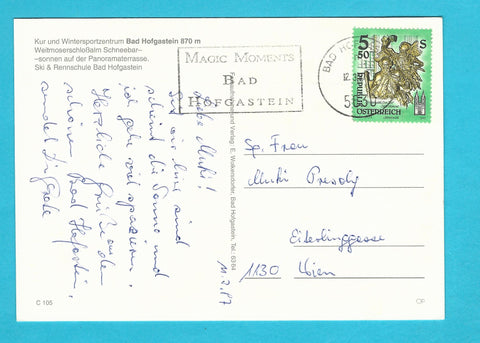 Kur und Wintersportzentrum Bad Hofgastein 870 m
Weitmoserschloßalm Schneebar–
–sonnen auf der Panoramaterrasse.
Ski & Rennschule Bad Hofgastein
MAGIC MOMENTS
BAD
HOFGASTEIN
BAD HO
12.3
5630
5 50
S
REPUBLIK
ÖSTERREICH
Liebe Muki!
wir hier sind
scheint die Sonne und
ich gehe viel spazieren.
Herzliche Grüße aus dem
schönen Bad Hofgastein,
sendet
11.3.87
und Verlag: E. Wolkersdorfer, Bad Hofgastein, Tel. 6364
Frau
Muki
Eitelbergergasse
1130 Wien
C 105